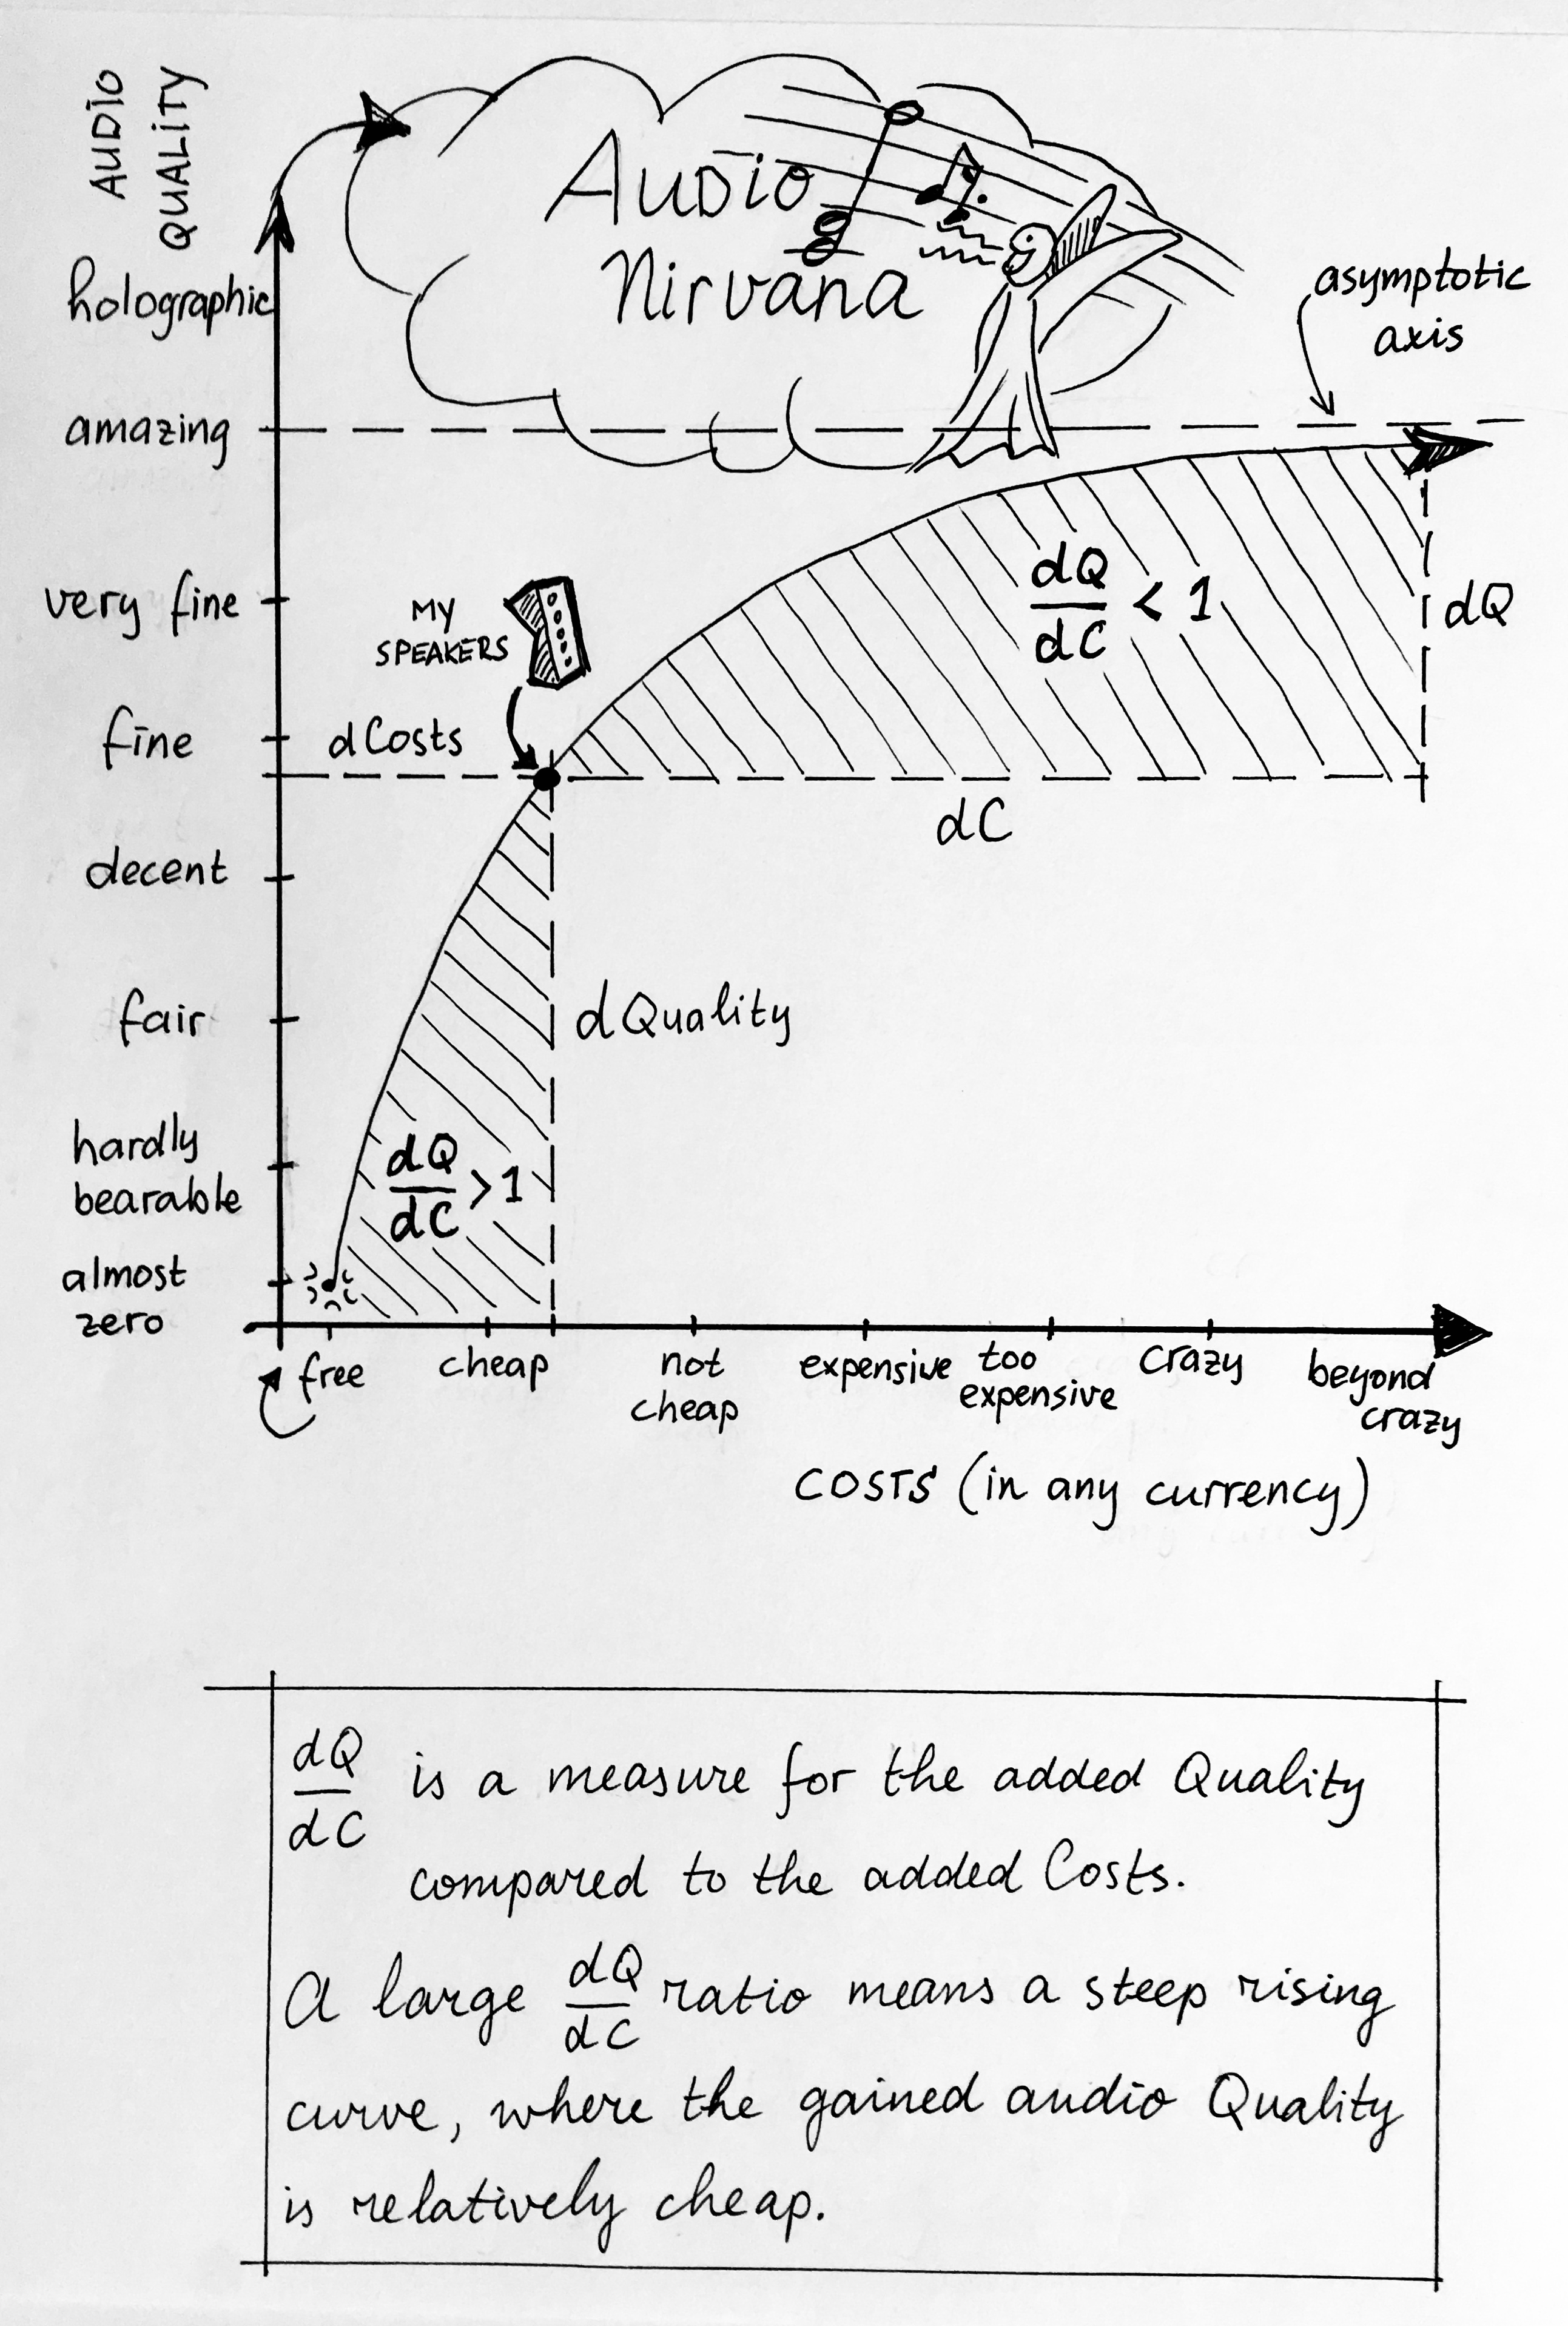 AUDIO
QUALITY
Audio
Nirvana
holographic
asymptotic
axis
amazing
dQ
dC
< 1
very fine
MY
SPEAKERS
dQ
fine
dCosts
dC
decent
fair
dQuality
hardly
bearable
dQ
dC
>1
almost
zero
free
cheap
not
cheap
expensive
too
expensive
crazy
beyond
crazy
COSTS (in any currency)
dQ
dC
is a measure for the added Quality
compared to the added Costs.
A large dQ/dC ratio means a steep rising
curve, where the gained audio Quality
is relatively cheap.